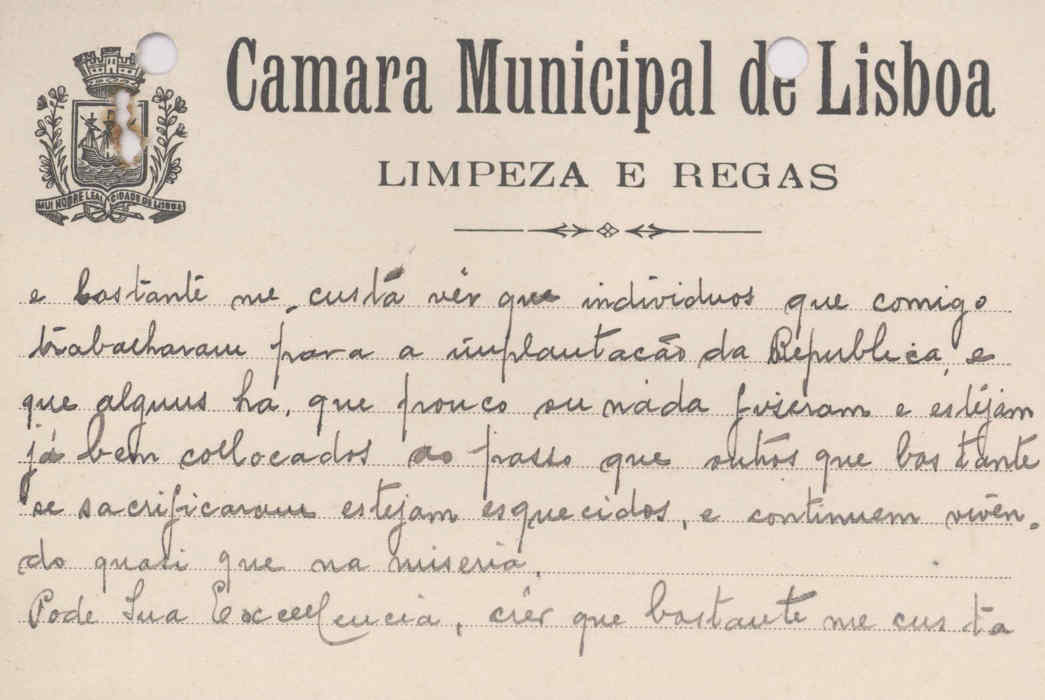 Camara Municipal de Lisboa
MUI NOBRE LEAL CIDADE DE LISBOA
LIMPEZA E REGAS
e bastante me custa vêr que individuos que comigo
trabalharam para a implantacão da Republica, e
que alguns ha, que pouco ou náda fiseram e estéjam
já bem collocados ao passo que outros que bastante
se sacrificaram estejam esquecidos, e continuem vivên-
do quasi que na miseria.
Pode Sua Excellencia, crêr que bastante me custa